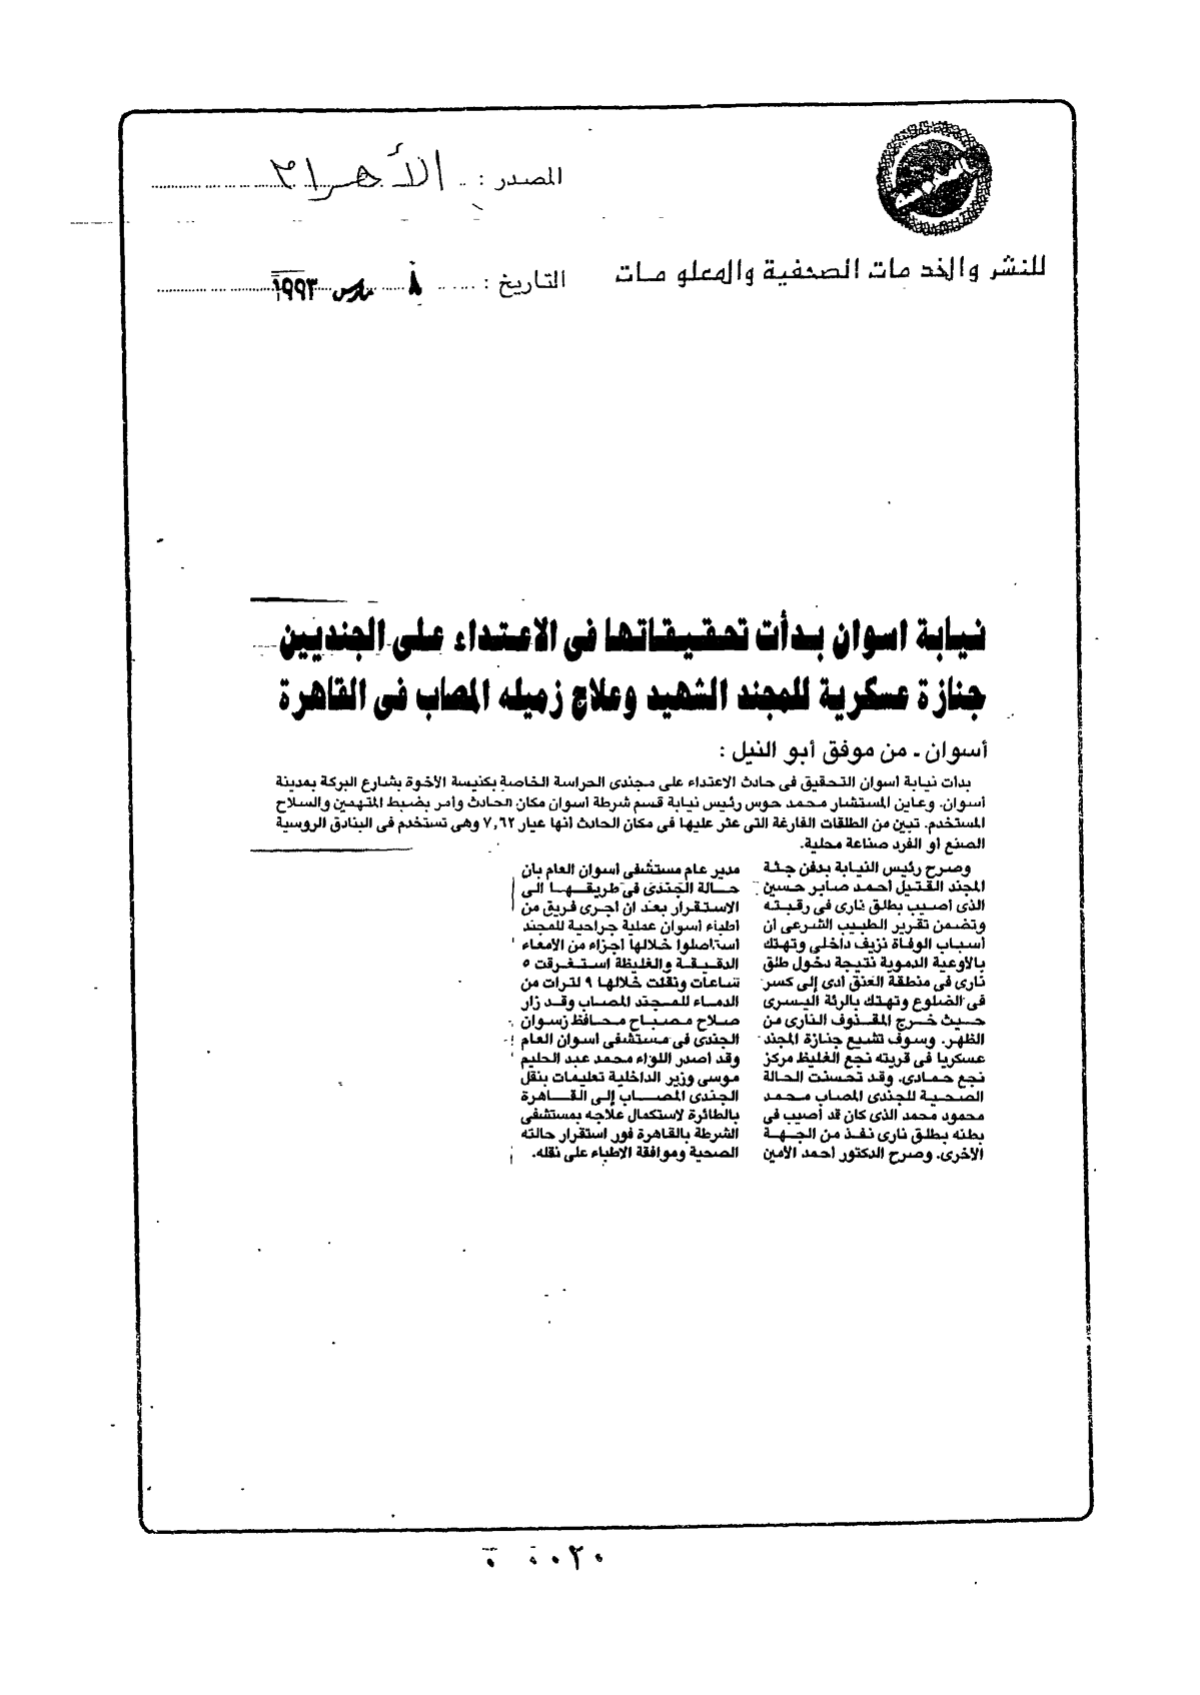 المصدر : الأهرام
للنشر والخدمات الصحفية والمعلومات
التاريخ : ٨ مارس ١٩٩٣
نيابة اسوان بدأت تحقيقاتها فى الاعتداء على الجنديين
جنازة عسكرية للمجند الشهيد وعلاج زميله المصاب فى القاهرة
أسوان ـ من موفق أبو النيل :
بدات نيابة اسوان التحقيق فى حادث الاعتداء على مجندى الحراسة الخاصة بكنيسة الأخوة بشارع البركة بمدينة
أسوان. وعاين المستشار محمد حوس رئيس نيابة قسم شرطة اسوان مكان الحادث وأمر بضبط المتهمين والسلاح
المستخدم. تبين من الطلقات الفارغة التى عثر عليها فى مكان الحادث أنها عيار ٧,٦٢ وهى تستخدم فى البنادق الروسية
الصنع أو الفرد صناعة محلية.
وصرح رئيس النيابة بدفن جثة
المجند القتيل احمد صابر حسين
الذى اصيب بطلق نارى فى رقبته
وتضمن تقرير الطبيب الشرعى أن
أسباب الوفاة نزيف داخلى وتهتك
بالاوعية الدموية نتيجة دخول طلق
نارى فى منطقة العنق ادى إلى كسر
فى الضلوع وتهتك بالرئة اليسرى
حيث خرج المقذوف النارى من
الظهر. وسوف تشيع جنازة المجند
عسكريا فى قريته نجع الغليظ مركز
نجع حمادى. وقد تحسنت الحالة
الصحية للجندى المصاب محمد
محمود محمد الذى كان قد أصيب فى
بطنه بطلق نارى نفذ من الجهة
الاخرى. وصرح الدكتور احمد الأمين
مدير عام مستشفى أسوان العام بان
حالة الجندى فى طريقها الى
الاستقرار بعد ان اجرى فريق من
اطباء أسوان عملية جراحية للمجند
استاصلوا خلالها اجزاء من الامعاء
الدقيقة والغليظة استغرقت ٥
ساعات ونقلت خلالها ٩ لترات من
الدماء للمجند المصاب وقد زار
صلاح مصباح محافظ زسوان
الجندى فى مستشفى اسوان العام
وقد أصدر اللواء محمد عبد الحليم
موسى وزير الداخلية تعليمات بنقل
الجندى المصاب إلى القاهرة
بالطائرة لاستكمال علاجه بمستشفى
الشرطة بالقاهرة فور استقرار حالته
الصحية وموافقة الاطباء على نقله.